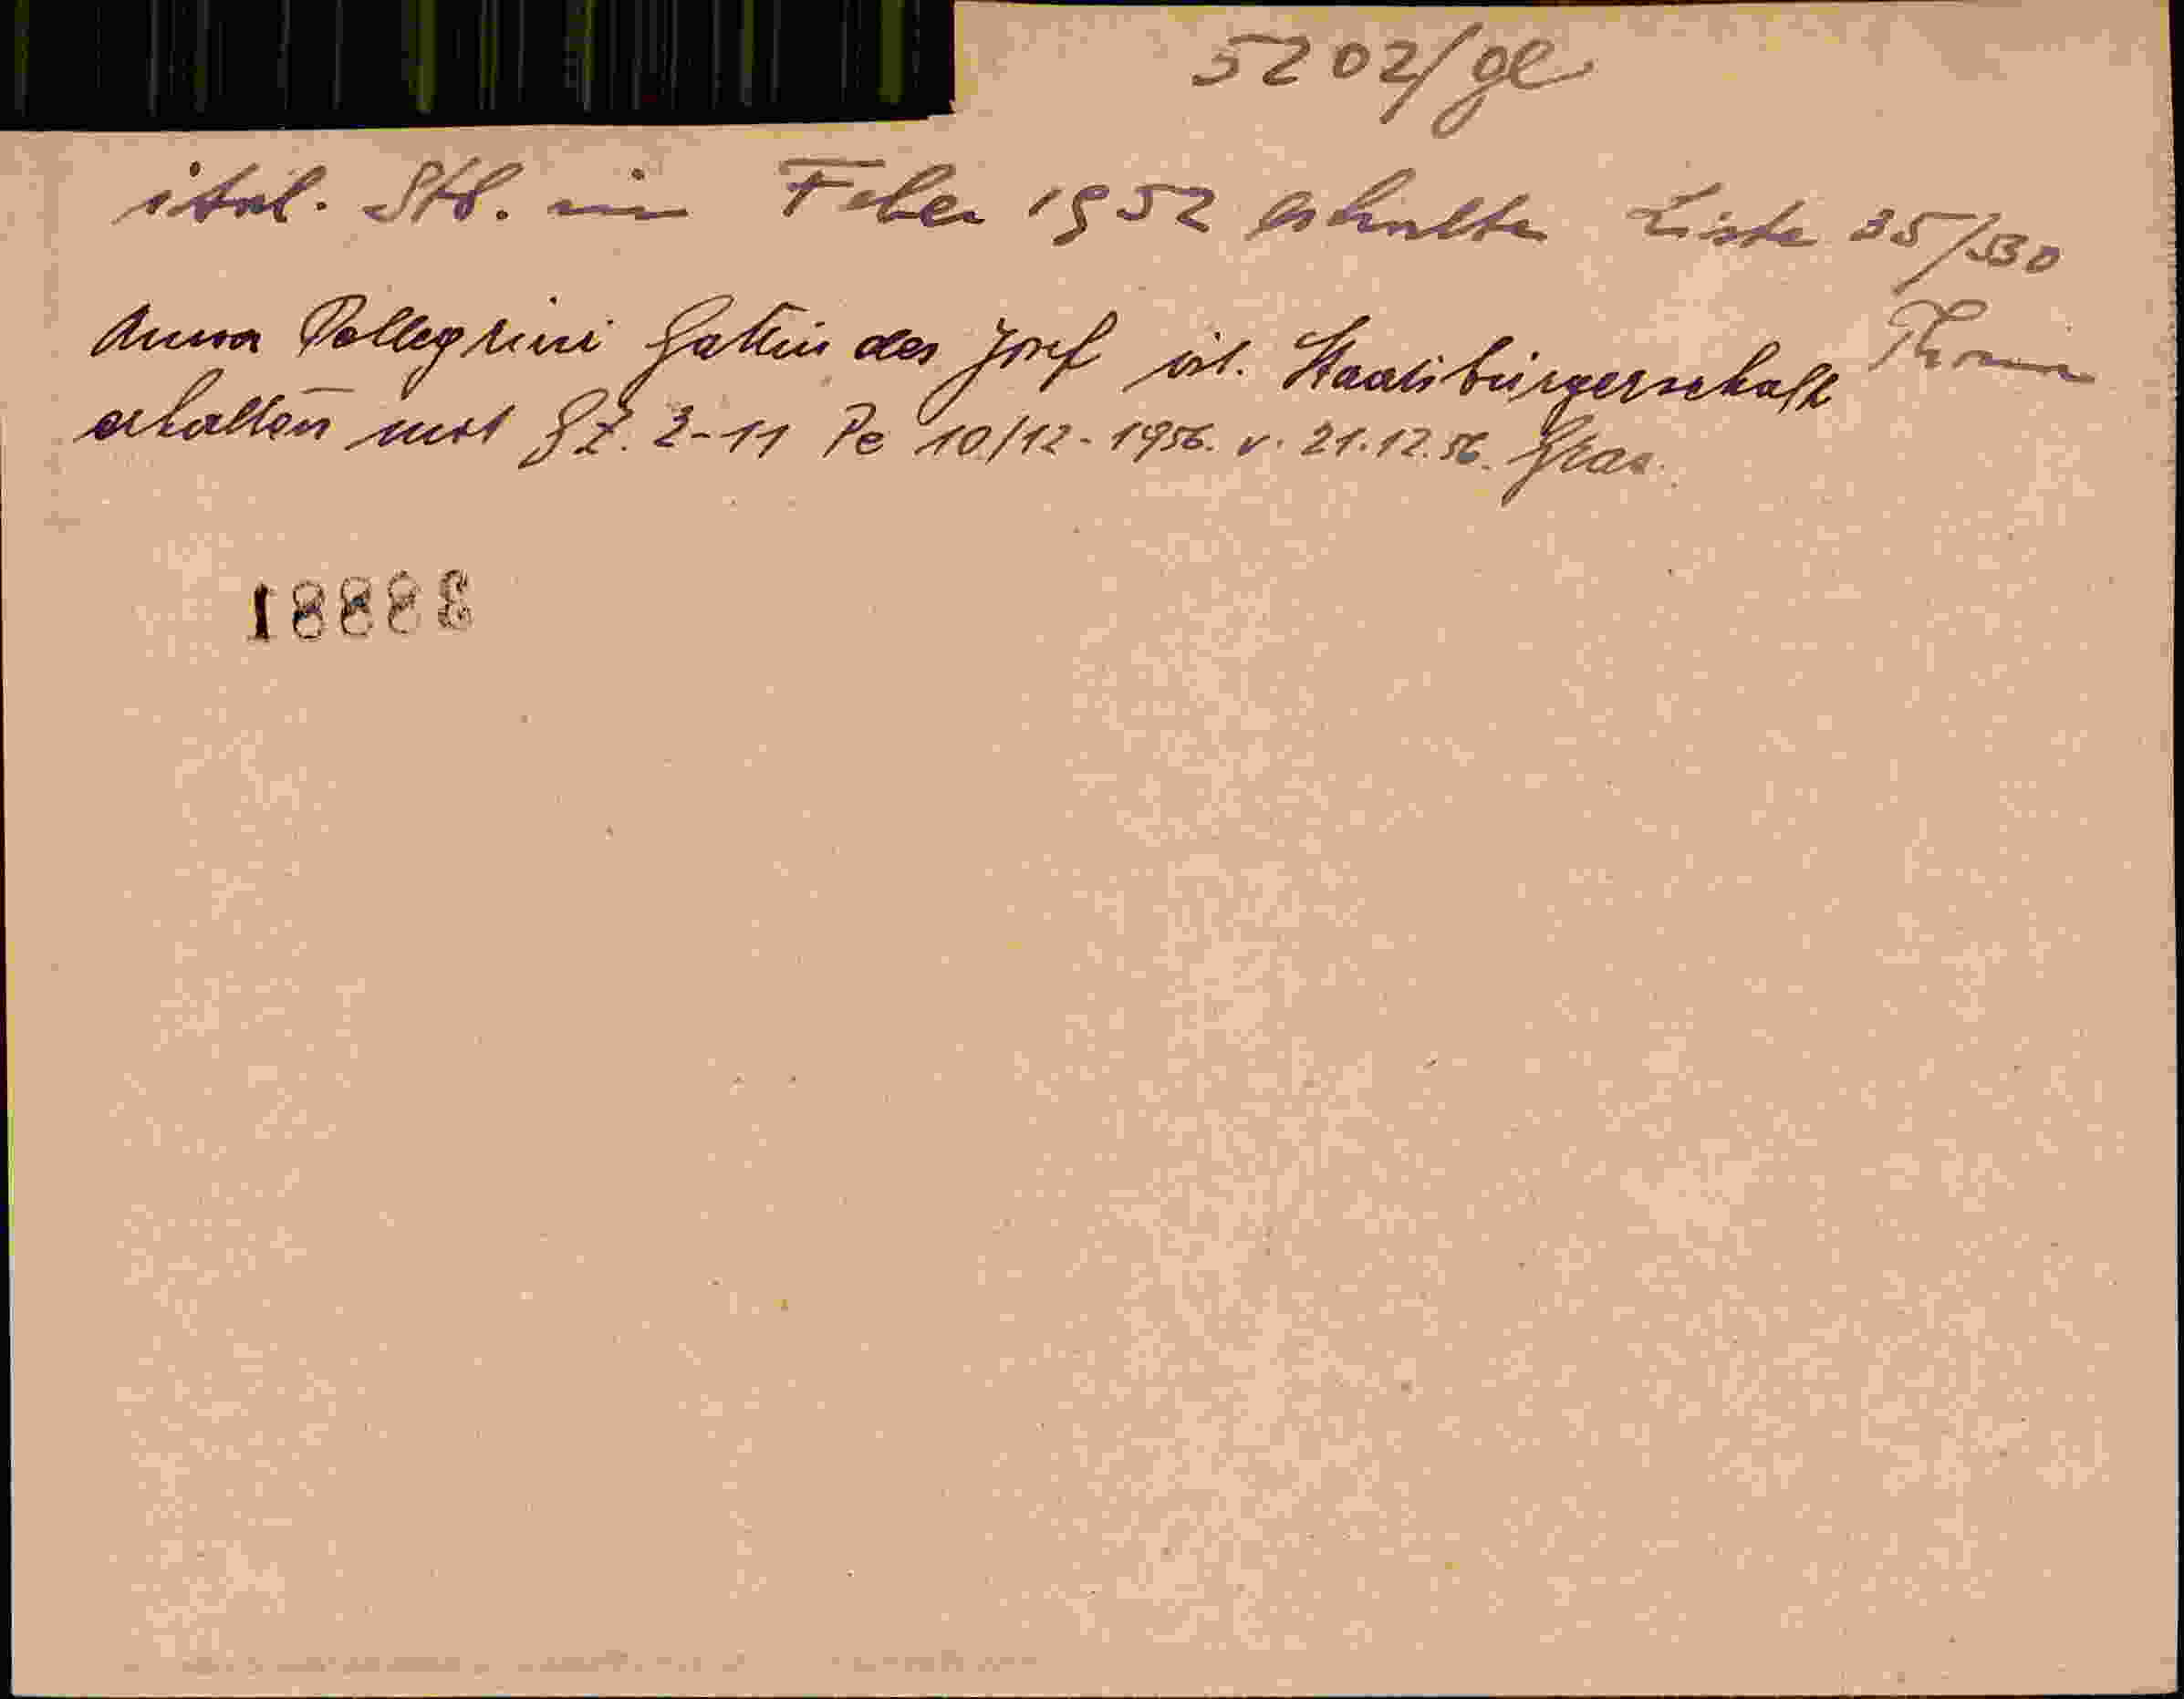 5202/ge
ital. Stb. im Feber 1952 erhalten Liste 35/530
Anna Pellegrini Gattin des Josef öst. Staatsbürgerschaft
erhalten mit GZ. 2-11 Pe 10/12-1956. v. 21.12.56. Graz.
18888